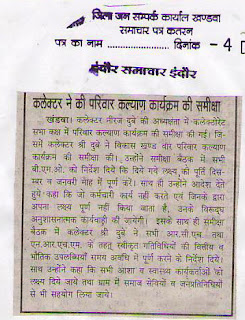 जिला जन सम्पर्क कार्याल खण्डवा
समाचार पत्र कतरन
पत्र का नाम .................... दिनांक - 4
इंदौर समाचार इंदौर
कलेक्टर ने की परिवार कल्याण कार्यक्रम की समीक्षा
खंडवा। कलेक्टर नीरज दुबे की अध्यक्षता में कलेक्टोरेट
सभा कक्ष में परिवार कल्याण कार्यक्रम की समीक्षा की गई। जिस-
में कलेक्टर श्री दुबे ने विकास खण्ड वार परिवार कल्याण
कार्यक्रम की समीक्षा की। उन्होंने समीक्षा बैठक में सभी
बी.एम.ओ. को निर्देश दिये कि दिये गये लक्ष्य की पूर्ति दिस-
म्बर व जनवरी माह में पूर्ण करें। साथ ही उन्होंने आदेश देते
हुये कहा कि जो कर्मचारी कार्य नहीं करते एवं जिनके द्वारा
अपना लक्ष्य पूर्ण नहीं किया जाता है, उनके विरूद्ध
अनुशासनात्मक कार्यवाही की जायेगी। इसके साथ ही समीक्षा
बैठक में कलेक्टर श्री दुबे ने सभी आर.सी.एच. तथा
एन.आर.एच.एम. के तहत् स्वीकृत गतिविधियों की वित्तीय व
भौतिक उपलब्धियां समय अवधि में पूर्ण करने के निर्देश दिये।
साथ उन्होंने कहा कि सभी आशा व स्वास्थ्य कार्यकर्ताओं को
लक्ष्य दिये जाये तथा ग्राम में समाज सेवियों व जनप्रतिनिधियों
से भी सहयोग लिया जाये।